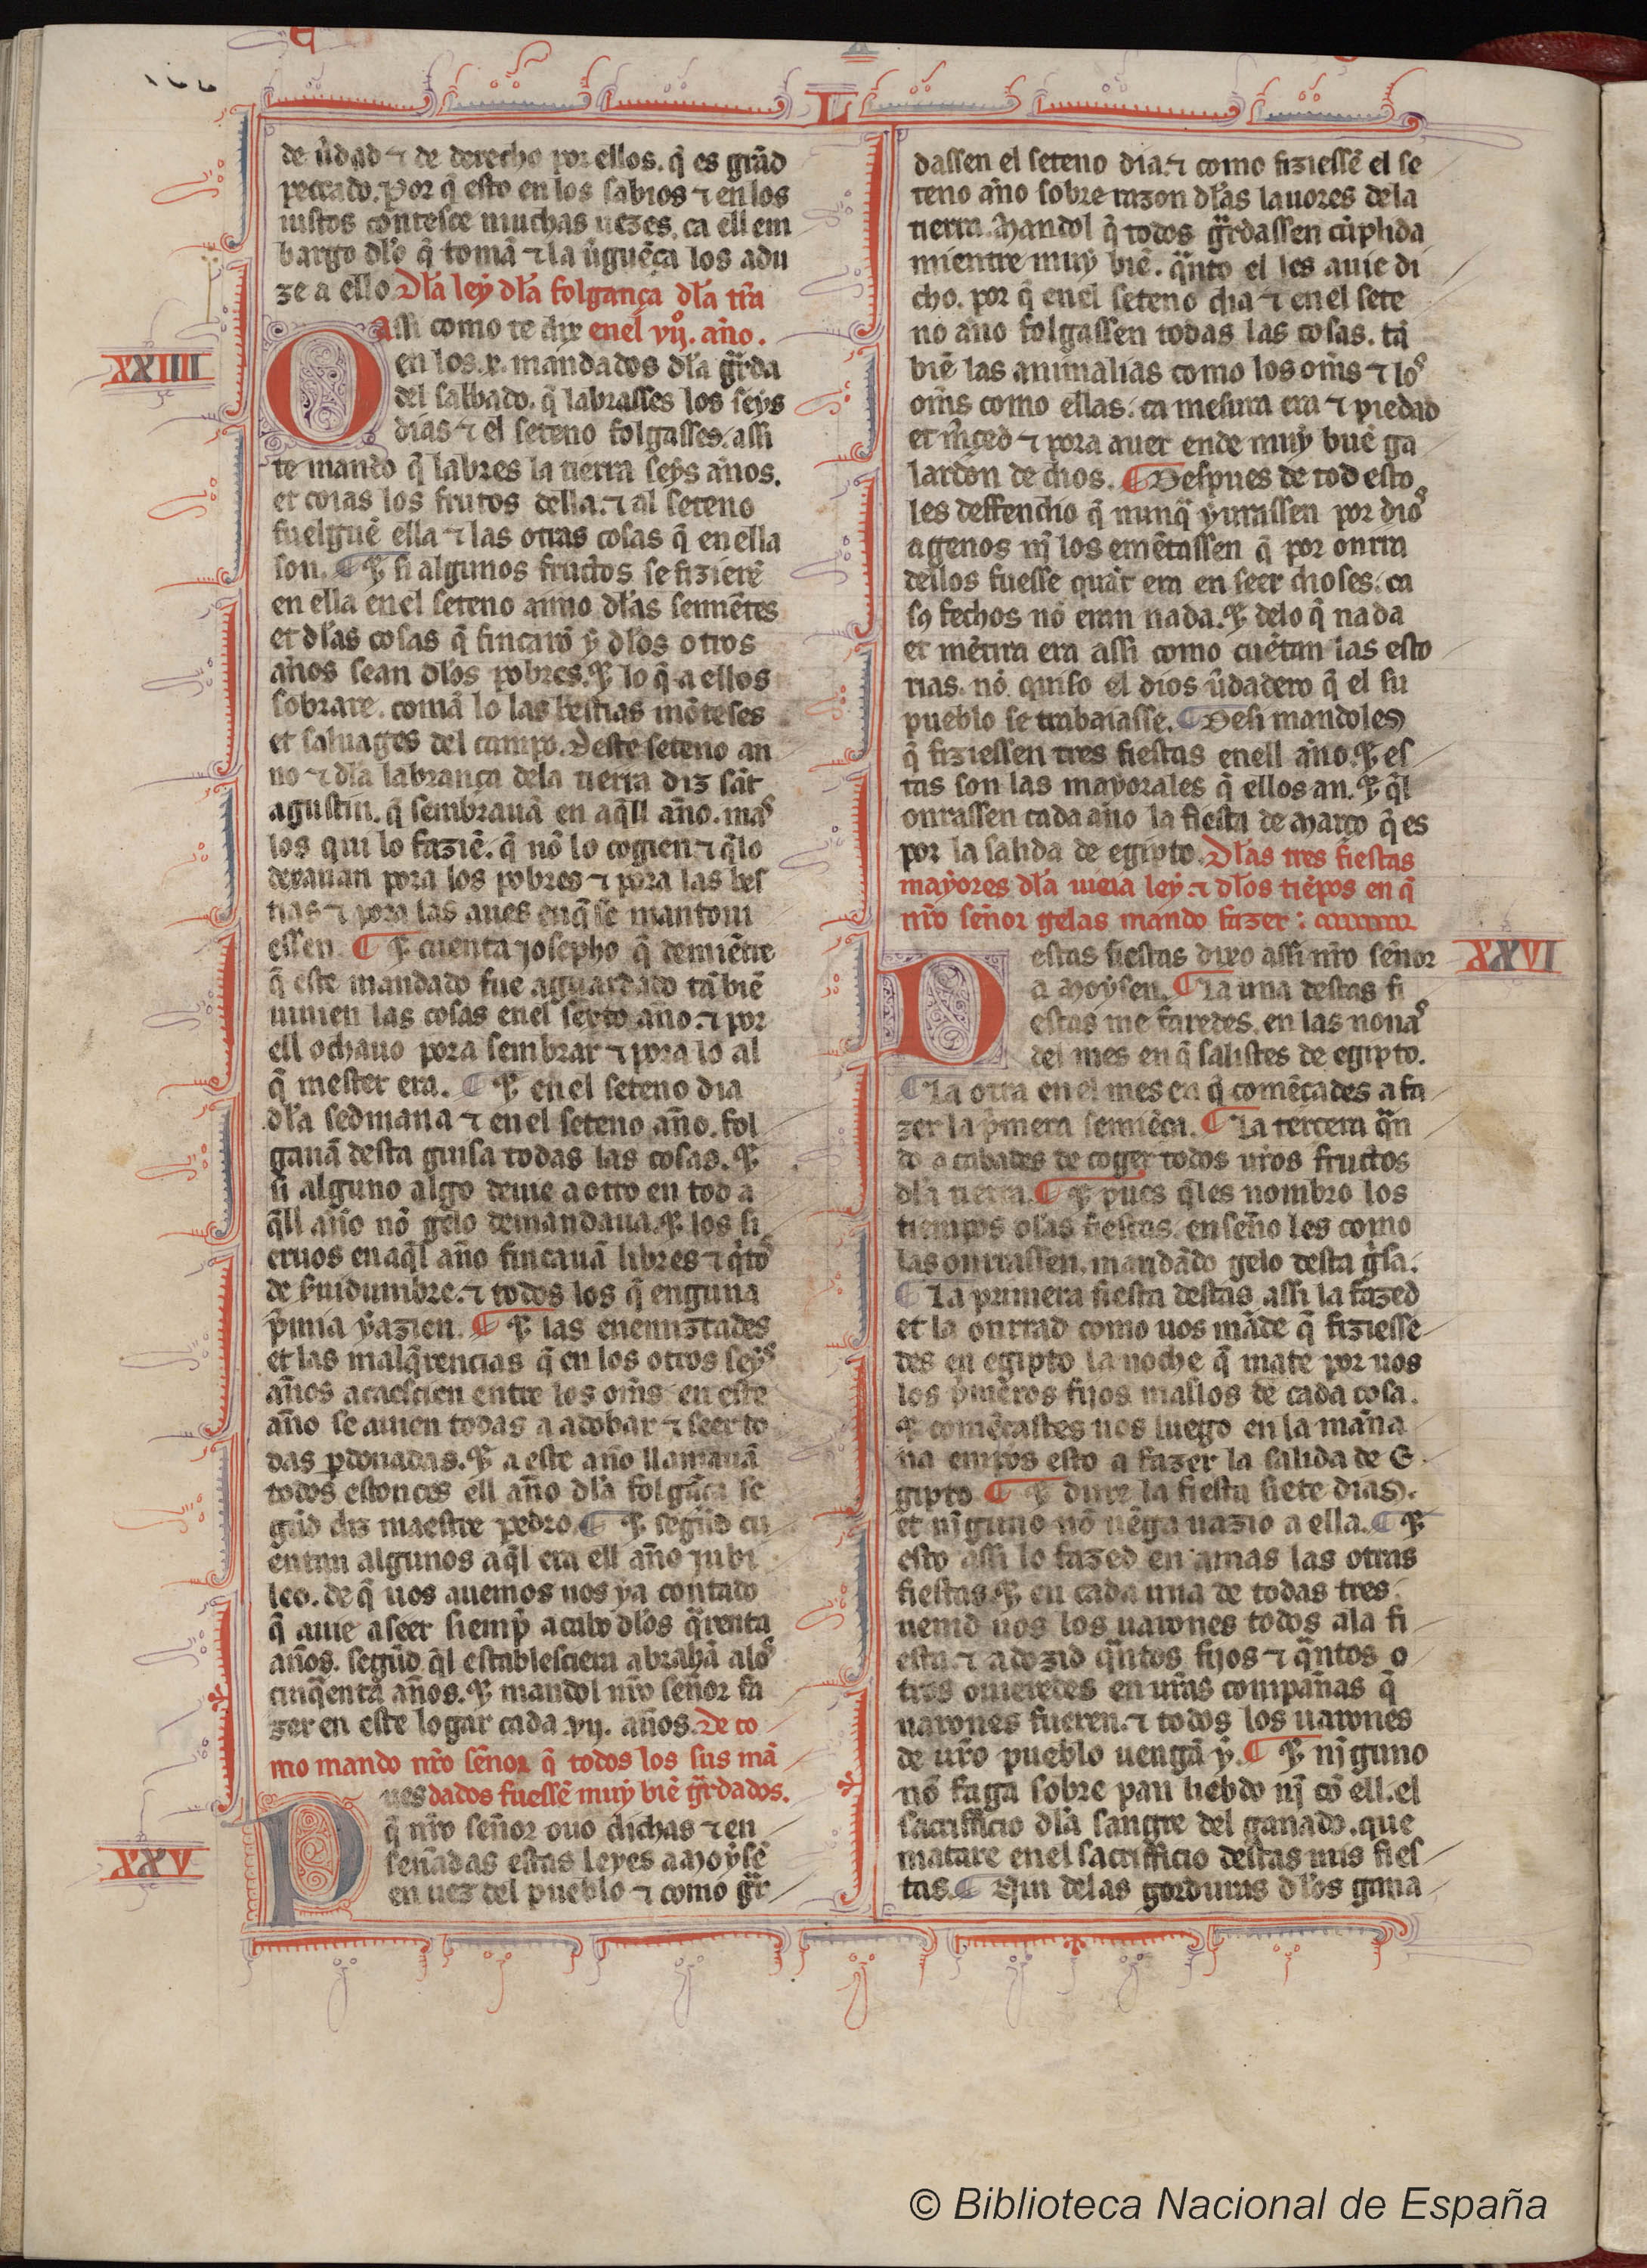 L
de ũdad ⁊ de derecho por ellos. q̃ es grãd
peccado. Por q̃ esto en los sabios ⁊ en los
iustos contesce muchas uezes. ca ell em
bargo dl̃o q̃ tomã ⁊ la ũguẽça los adu
ze a ello. Dl̃a ley dl̃a folgança dl̃a tr̃ra
Assi como te dix enel vijº. año.
XXIIII
O en los .x. mandados dl̃a gr̃da
del sabbado. q̃ labrasses los seys
dias ⁊ el seteno folgasses. assi
te mando q̃ labres la tierra seys años.
et coias los frutos della. ⁊ al seteno
fuelguẽ ella ⁊ las otras cosas q̃ en ella
son. ¶ ⁊ si algunos fructos se fizierẽ
en ella enel seteno anno dl̃as semiẽtes
et dl̃as cosas q̃ fincarõ y dl̃os otros
años sean dl̃os pobres. ⁊ lo q̃ a ellos
sobrare. comã lo las bestias mõteses
et saluages del campo. Deste seteno an
no ⁊ dl̃a labrança dela tierra diz sãt
agustin. q̃ sembrauã en aq̃ll año. mas
los qui lo faziẽ. q̃ nõ lo cogien ⁊ q̃lo
dexauan pora los pobres ⁊ pora las bes
tias ⁊ pora las aues enq̃ se mantoui
essen. ¶ ⁊ cuenta josepho q̃ demiẽtre
q̃ este mandado fue aguardado tã biẽ
uinien las cosas enel sexto año. ⁊ por
ell ochauo pora sembrar ⁊ pora lo al
q̃ mester era. ¶ ⁊ enel seteno dia
dl̃a sedmana ⁊ enel seteno año. fol
gauã desta guisa todas las cosas. ⁊
si alguno algo deuie a otro en tod a
q̃ll año nõ gelo demandaua. ⁊ los si
eruos enaq̃l año fincauã libres ⁊ q̃tos
de ẜuidumbre. ⁊ todos los q̃ enguna
p̃mia yazien. ¶ ⁊ las enemiztades
et las malq̃rencias q̃ en los otros seys
años acaescien entre los om̃s en este
año se auien todas a adobar ⁊ seer to
das ꝑdonadas. ⁊ a este año llamauã
todos estonces ell año dl̃a folgãça se
gũd diz maestre pedro. ¶ ⁊ segũd cu
entan algunos aq̃l era ell año jubi
leo. de q̃ uos auemos nos ya contado
q̃ auie a seer siemp̃ acabo dl̃os q̃renta
años. segũd q̃l establesciera abrahã alos
cinq̃enta años. ⁊ mandol nr̃o señor fa
zer en este logar cada .vij. años. De co
mo mando nr̃o señor q̃ todos los sus mã
Pues dados fuessẽ muy biẽ gr̃dados.
q̃ nr̃o señor ouo dichas ⁊ en
XXV
señadas estas leyes a Moysẽ
en uez del pueblo ⁊ como gr̃
dassen el seteno dia. ⁊ como fiziessẽ el se
teno año sobre razon dl̃as lauores dela
tierra. Mandol q̃ todos gr̃dassen cũplida
mientre muy biẽ. q̃nto el les auie di
cho. por q̃ enel seteno dia ⁊ enel sete
no año folgassen todas las cosas. tã
biẽ las animalias como los om̃s ⁊ los
om̃s como ellas. ca mesura era ⁊ piedad
et m̃ced ⁊ pora auer ende muy buẽ ga
lardon de dios. ¶ Despues de tod esto
les deffendio q̃ nunq̃ yurassen por dios
agenos nĩ los emẽtassen q̃ por onrra
dellos fuesse quãt era en seer dioses. ca
sꝯ fechos nõ eran nada. ⁊ delo q̃ nada
et mẽtira era assi como cuẽtan las esto
rias. nõ quiso el dios ũdadero q̃ el su
pueblo se trabaiasse. ¶ Desi mandoles
q̃ fiziessen tres fiestas enell año. ⁊ es
tas son las mayorales q̃ ellos an. ⁊ q̃l
onrassen cada año la fiesta de março q̃ es
por la salida de egipto. Dl̃as tres fiestas
mayores dl̃a uieia ley. ⁊ dl̃os tiẽpos en q̃
nr̃o señor gelas mando fazer :
Destas fiestas dixo assi nr̃o señor
XXVI
a Moysen. ¶ La una destas fi
estas me faredes. en las nonas
del mes en q̃ salistes de egipto.
¶ La otra en el mes en q̃ comẽçades a fa
zer la p̃mera semiẽça. ¶ La tercera q̃n
do acabades de coger todos ur̃os fructos
dl̃a tierra. ¶ ⁊ pues q̃les nombro los
tiempos dl̃as fiestas. enseño les como
las onrrassen. mandãdo gelo desta g̃sa.
¶ La primera fiesta destas assi la fazed
et la onrrad como uos mãde q̃ fiziesse
des en egipto la noche q̃ mate por uos
los p̃meros fijos maslos de cada cosa.
⁊ comẽçastes uos luego en la maña
na empos esto a fazer la salida de E
gipto. ¶ ⁊ dure la fiesta siete dias.
et nĩguno nõ uẽga uazio a ella. ¶ ⁊
esto assi lo fazed en amas las otras
fiestas. ⁊ en cada una de todas tres
uenid uos los uarones todos ala fi
esta. ⁊ adozid q̃ntos fijos ⁊ q̃ntos o
tros ouieredes en ur̃as compañas q̃
uarones fueren. ⁊ todos los uarones
de ur̃o pueblo uengã y. ¶ ⁊ nĩguno
nõ faga sobre pan liebdo nĩ cõ ell. el
sacrifficio dl̃a sangre del ganado. que
matare enel sacrifficio destas mis fies
tas. ¶ Nin delas gorduras dl̃os gana
© Biblioteca Nacional de España